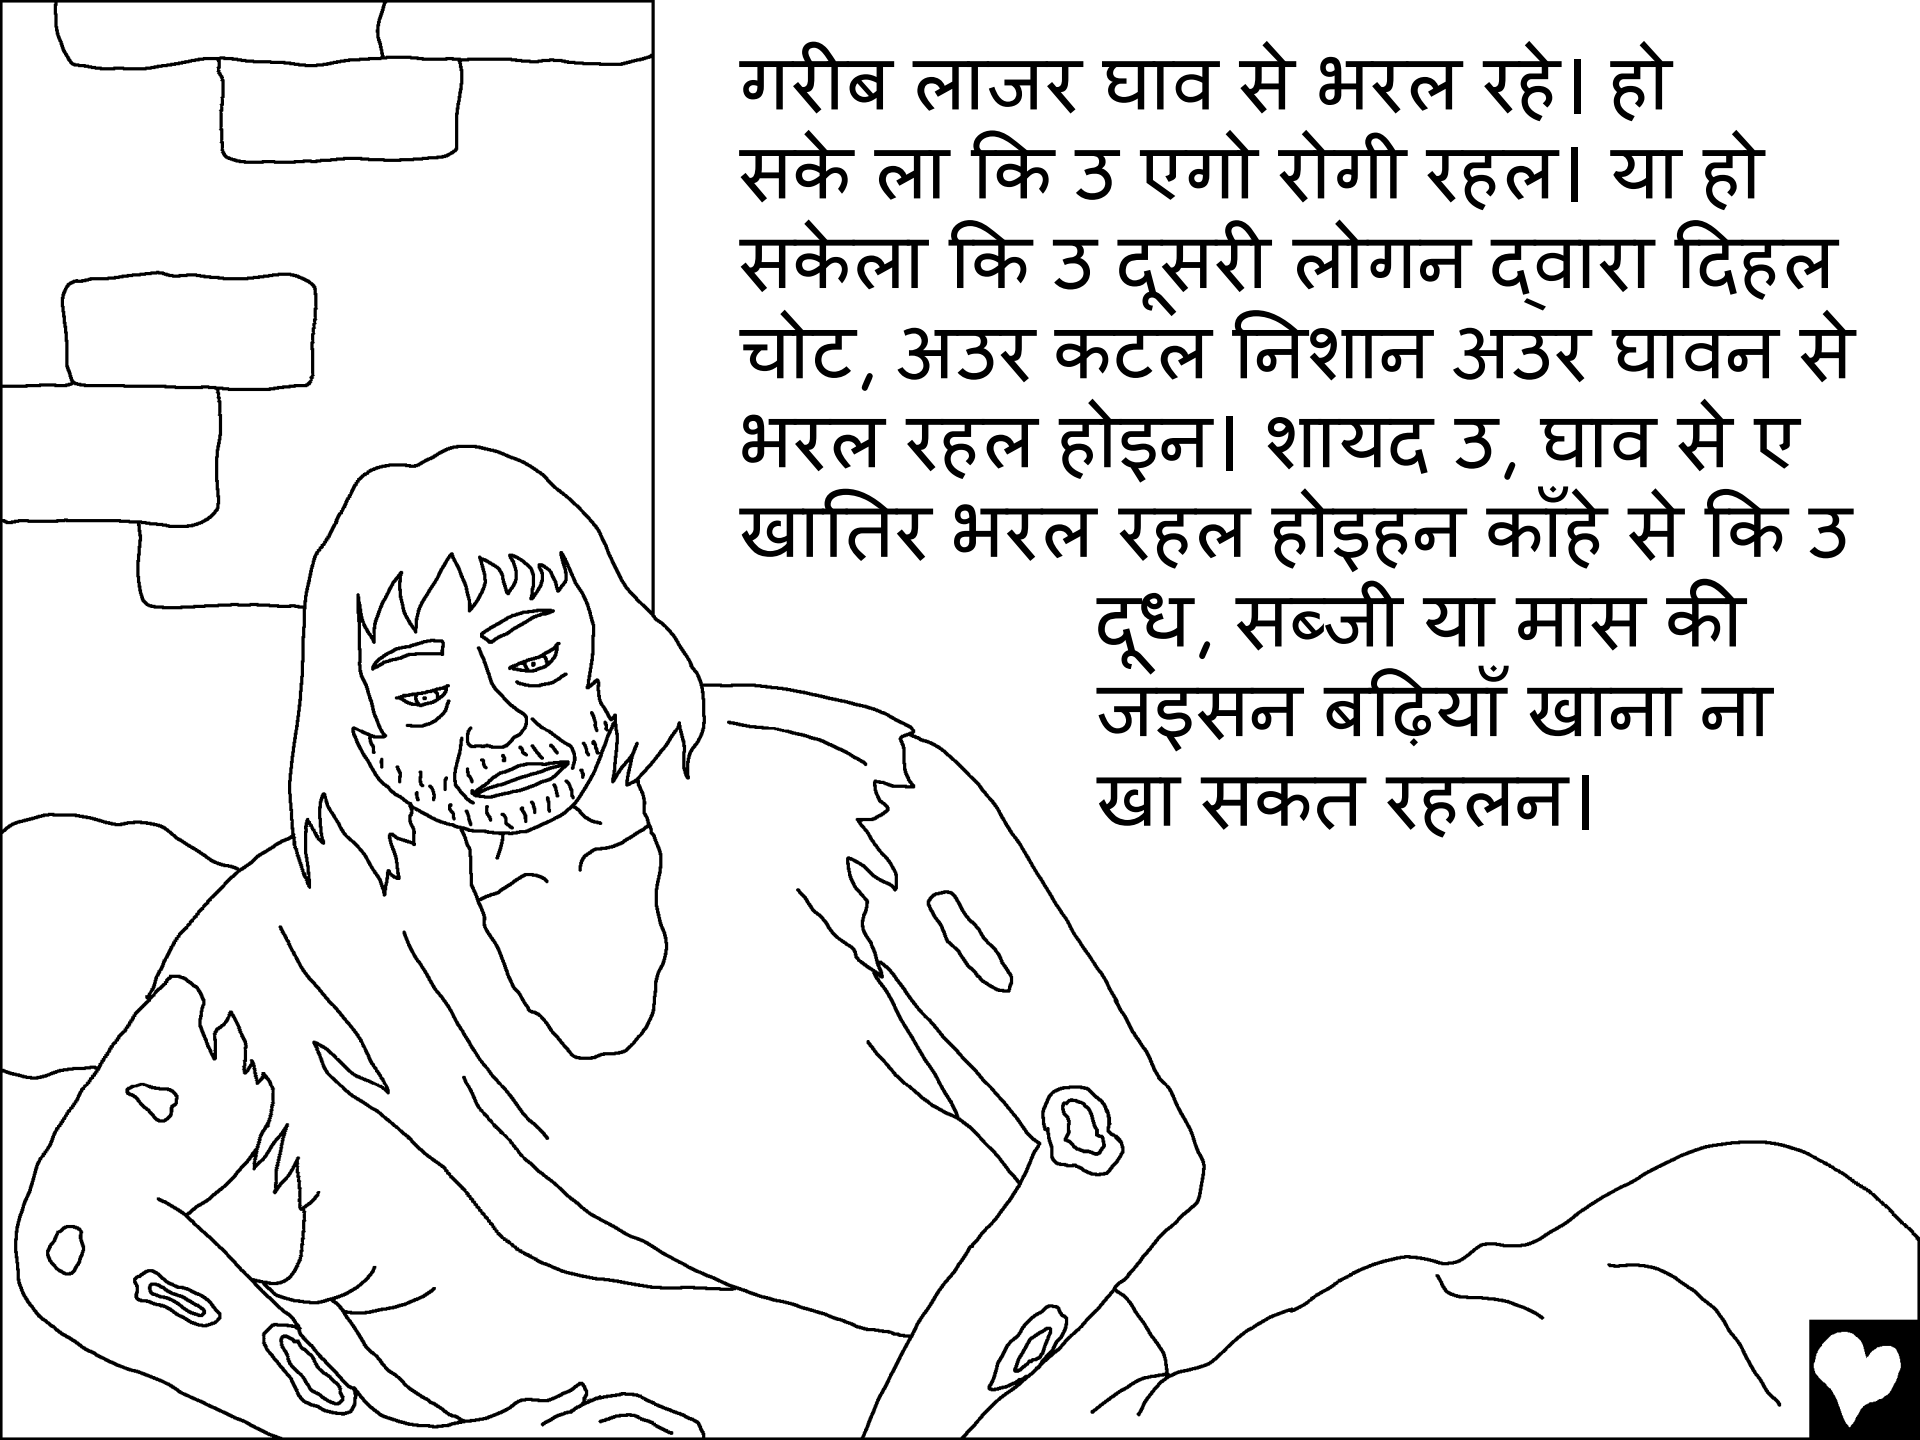 गरीब लाजर घाव से भरल रहे। हो
सके ला कि उ एगो रोगी रहल। या हो
सकेला कि उ दूसरी लोगन द्वारा दिहल
चोट, अउर कटल निशान अउर घावन से
भरल रहल होइन। शायद उ, घाव से ए
खातिर भरल रहल होइहन काँहे से कि उ
दूध, सब्जी या मास की
जइसन बढ़ियाँ खाना ना
खा सकत रहलन।